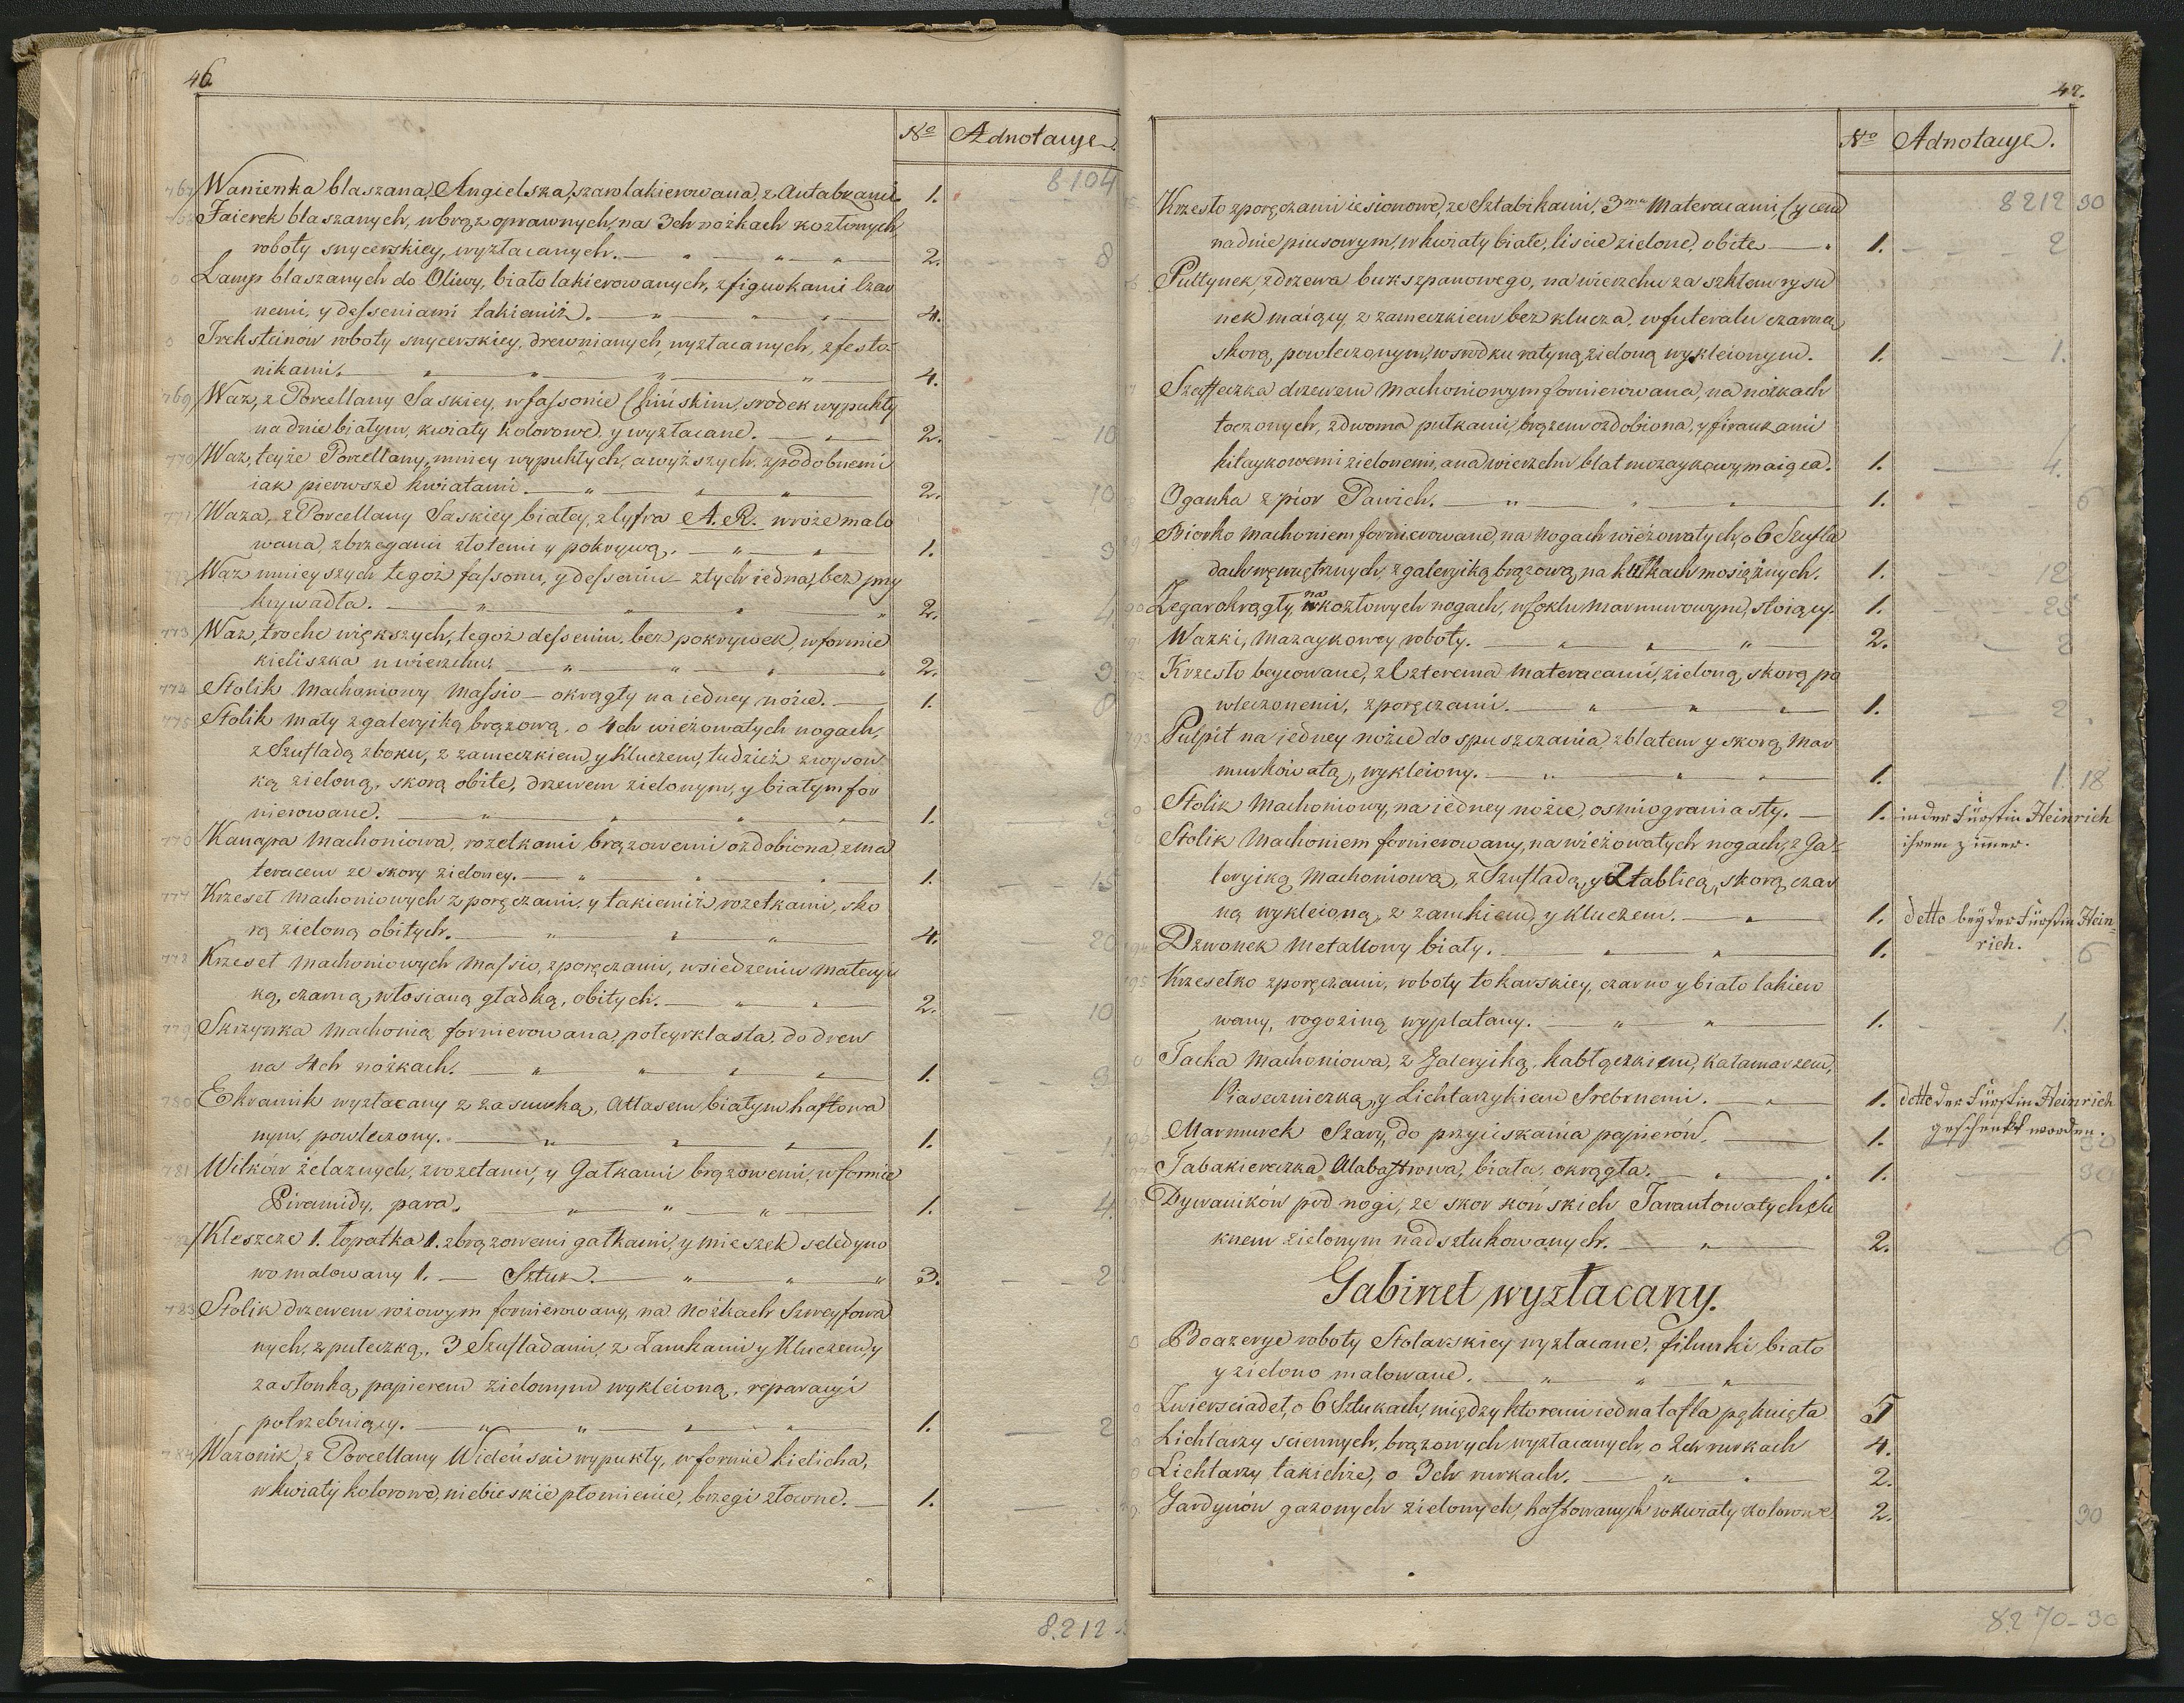 46.
No Adnotacye.
8104
767 Wanienka blaszana, Angielska, szaro lakierowana, z Antabkami 1.
768 Faierek blaszanych, w brąz oprawnych, na 3ch nożkach kozłowych,
roboty snycerskiey, wyztacanych. 2. 8
0 Lamp blaszanych do Oliwy, biało lakierowanych, z figurkami Czar
nemi, y desseniami takiemiż. 4.
0 Treksteinów roboty snycerskiey, drewnianych, wyztacanych, z festo=
nikami. 4.
769 Waz, z Porcellany Saskiey, w fassonie Chińskim, srodek wypukły
na dnie białym, kwiaty kolorowe, y wyztacane. 2. 10
770 Waz, teyże Porcellany, mniey wypukłych, a wyższych, z podobnemi
iak pierwsze kwiatami. 2. 10
771 Waza, z Porcellany Saskiey białey, z Cyfrą A.R. w róże malo
wana, z brzegami złotemi y pokrywą. 1. 3
772 Waz mnieyszych tegoż fassonu, y desseniu z tych iedna, bez przy
krywadła. 2. 4
773 Waz, troche większych, tegoż desseniu, bez pokrywek, w formie
kieliszka u wierzchu. 2. 3
774 Stolik Machoniowy Massiv okrągły na iedney nożce. 1. 8
775 Stolik mały z galeryiką brązową, o 4ch wieżowatych nogach,
z Szufladą z boku, z zameczkiem, y Kluczem, tudzież z wysow
ką zieloną, skorą obite, drzewem zielonym, y białym for
nierowane. 1. 3
776 Kanapa Machoniowa, rozetkami brązowemi ozdobiona, z ma
teracem ze skory zieloney. 1. 15
777 Krzeseł Machoniowych z poręczami, y takiemiż rozetkami, sko
rą zieloną obitych. 4. 20
778 Krzeseł Machoniowych Massiv, z poręczami, w siedzeniu materyi
ką, czarną, włosianą gładką, obitych. 2. 10
779 Skrzynka Machonią fornierowana, połcyrklasta, do drew
na 4ch nożkach. 1. 3
780 Ekranik wyztacany z zasuwką, Attasem białym haftowa
nym, powleczony. 1. 1.
781 Wilków żelaznych, z rozetami, y Gałkami brązowemi, w formie
Piramidy, para. 1. 4.
782 Kleszcze 1. łopatka 1. z brązowemi gałkami, y mieszek seledyno
wo malowany 1. Sztuk. 3. 2
783 Stolik drzewem rożowym fornierowany, na Nożkach Szweyfowa
nych, z puteczką, 3 Szufladami, z Zamkami y Kluczem, y
zasłonką, papierem zielonym wykleioną, reparacyi
potrzebuiący. 1. 2
784 Wazonik, z Porcellany Wideński wypukły, w formie kielicha,
w kwiaty kolorowe, niebieskie płomienie, brzegi złocone. 1.
8.212
47.
No Adnotacye.
8212 30
Krzesło z poręczami iesionowe, ze Sztabikami, 3ma Materacami, Cycem
na dnie piusowym, w kwiaty białe, liscie zielone, obite 1. 2
Pultynek, z drzewa bukszpanowego, na wierzchu za szkłem rysu
nek maiący, z zameczkiem bez klucza, w futerału czarną
skorą, powleczonym, w srodku ratyną zieloną wykleionym. 1. 1.
Szaffeczka drzewem Machoniowym fornierowana, na nóżkach
toczonych, z dwoma pułkami, brązem ozdobiona, y firankami
kitaykowemi zielonemi, a na wierzchu blat mozaykowy, maiąca. 1. 4.
Oganka z piór Pawich. 1. 6
Biorko Machoniem fornierowane, na Nogach wieżowatych, o 6 Szufla
dach wewnętrznych, z galeryiką brązową, na kółkach mosiężnych. 1. 12
Zegar okrągły, na kozłowych nogach, w soklu Marmurowym, stoiący. 1. 25
Wazki, Mazaykowey roboty. 2. 2
Krzesło beycowane, z Czterema Materacami, zieloną, skorą po
wleczonemi, z poręczami. 1. 2.
793 Pulpit na iedney nożce do spuszczania, z blatem y skorą Mar
murkówatą, wykleiony. 1. 1. 18
0 Stolik Machoniowy, na iedney nożce, osmiograniasty. 1. in der Fürstin Heinrich
ihrem zimmer.
Stolik Machoniem fornierowany, na wieżowatych nogach, z Ga=
leryiką Machoniową, z Szufladą, y z tablicą, skorą czar
ną wykleioną, z zamkiem, y Kluczem. 1. detto beÿ der Fürstin Hein=
rich.
794 Dzwonek Metallowy biały. 1. 6
795 Krzesełko z poręczami, roboty tokarskiey, czarno y biało lakiero
wany, rogoziną wyplatany. 1. 1.
0 Tacka Machoniowa, z Galeryiką, kabłączkiem, kałamarzem,
Piaseczniczką, y Lichtarzykiem Srebrnemi. 1. detto der Fürstin Heinrich
geschenkt worden.
796 Marmurek Szary, do przyciskania papierów. 1. 30
797 Tabakiereczka Alabastrowa, biała, okrągła. 1. 30
Dywaników pod nogi, ze skor końskich Tarantowatych, Su
knem zielonym nadsztukowanych. 2. 6
Gabinet wyztacany.
0 Boazerye roboty Stolarskiey wyztacane, filunki, biało
y zielono malowane.
0 Zwierciadeł, o 6 Sztukach, między ktoremi iedna tafla pęknięta 5
0 Lichtarzy sciennych, brązowych wyztacanych, o 2ch rurkach 4.
0 Lichtarzy takichże, o 3ch rurkach. 2.
Gardynów gazowych zielonych, haftowanych w kwiaty kolorowe 2. 30
8270-30